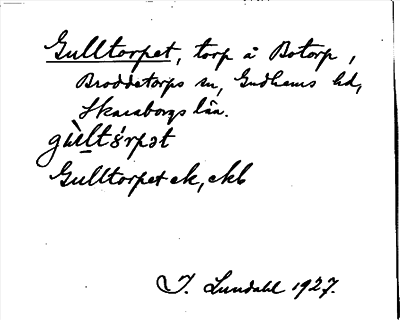 Gulltorpet, torp å Botorp,
Broddetorps sn, Gudhems hd,
Skaraborgs län.
gùltó̤rpət
Gulltorpet ek, ekb
I. Lundahl 1927.